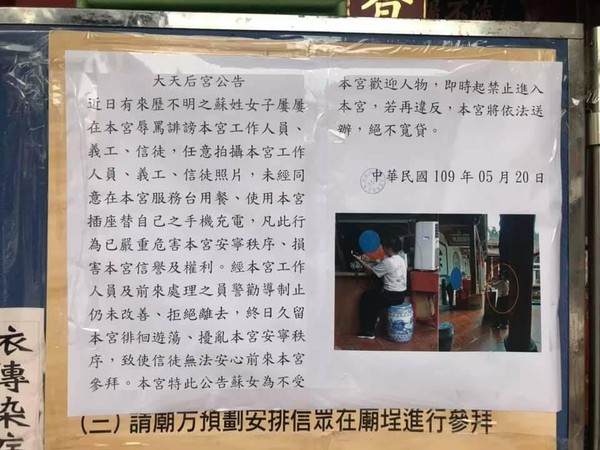 大天后宮公告
近日有來歷不明之蘇姓女子屢屢
在本宮辱罵誹謗本宮工作人員、
義工、信徒，任意拍攝本宮工作
人員、義工、信徒照片，未經同
意在本宮服務台用餐、使用本宮
插座替自己之手機充電，凡此行
為已嚴重危害本宮安寧秩序、損
害本宮信譽及權利。經本宮工作
人員及前來處理之員警勸導制止
仍未改善、拒絕離去，終日久留
本宮徘徊遊蕩、擾亂本宮安寧秩
序，致使信徒無法安心前來本宮
參拜。本宮特此公告蘇女為不受
本宮歡迎人物，即時起禁止進入
本宮，若再違反，本宮將依法送
辦，絕不寬貸。
中華民國 109 年 05 月 20 日
(三) 請廟方預劃安排信眾在廟埕進行參拜
衣傳染